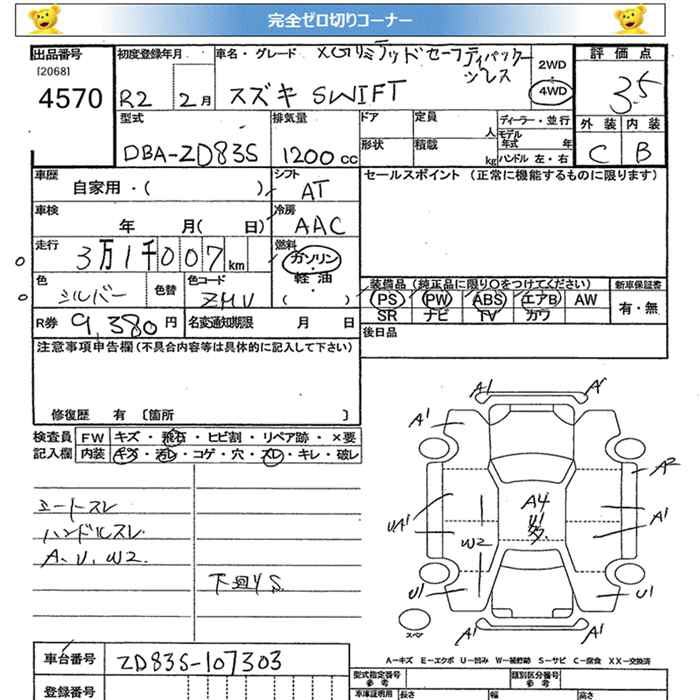 完全ゼロ切りコーナー
出品番号
[2068]
4570
初度登録年月
R2 2月
車名・グレード
XGリミテッドセーフティパッケージ
ツレス
スズキ SWIFT
2WD
4WD
評価点
3.5
外装 内装
C B
型式
DBA-ZD83S
排気量
1200cc
ドア 定員 人
形状 積載 kg
ディーラー・並行
モデル年式 年
ハンドル 左・右
車歴
自家用・( )
シフト
AT
車検
年 月( 日)
冷房
AAC
走行
3万1千007km
燃料
ガソリン・軽油・( )
色
シルバー
色替
色コード
ZMV
R券 9,380円
名変通知期限 月 日
セールスポイント (正常に機能するものに限ります)
装備品 (純正品に限り〇をつけてください)
PS PW ABS エアB AW
SR ナビ TV カワ
新車保証書
有・無
後日品
注意事項申告欄(不具合内容等は具体的に記入して下さい)
修復歴 有 〔箇所 〕
検査員記入欄
FW キズ・飛石・ヒビ割・リペア跡・×要
内装 キズ・汚レ・コゲ・穴・スレ・キレ・破レ
シートスレ
ハンドルスレ
A.U.W2.
下廻りS
A1 A1
A1
A2
UA1
A4
U1
多
A1
W2
U1 U1
A1 A1
スペア
A－キズ E－エクボ U－凹み W－補修跡 S－サビ C－腐食 XX－交換済
車台番号 ZD83S-107303
登録番号
型式指定番号
参考
類別区分番号
参考
車庫証明用 長さ 幅 高さ